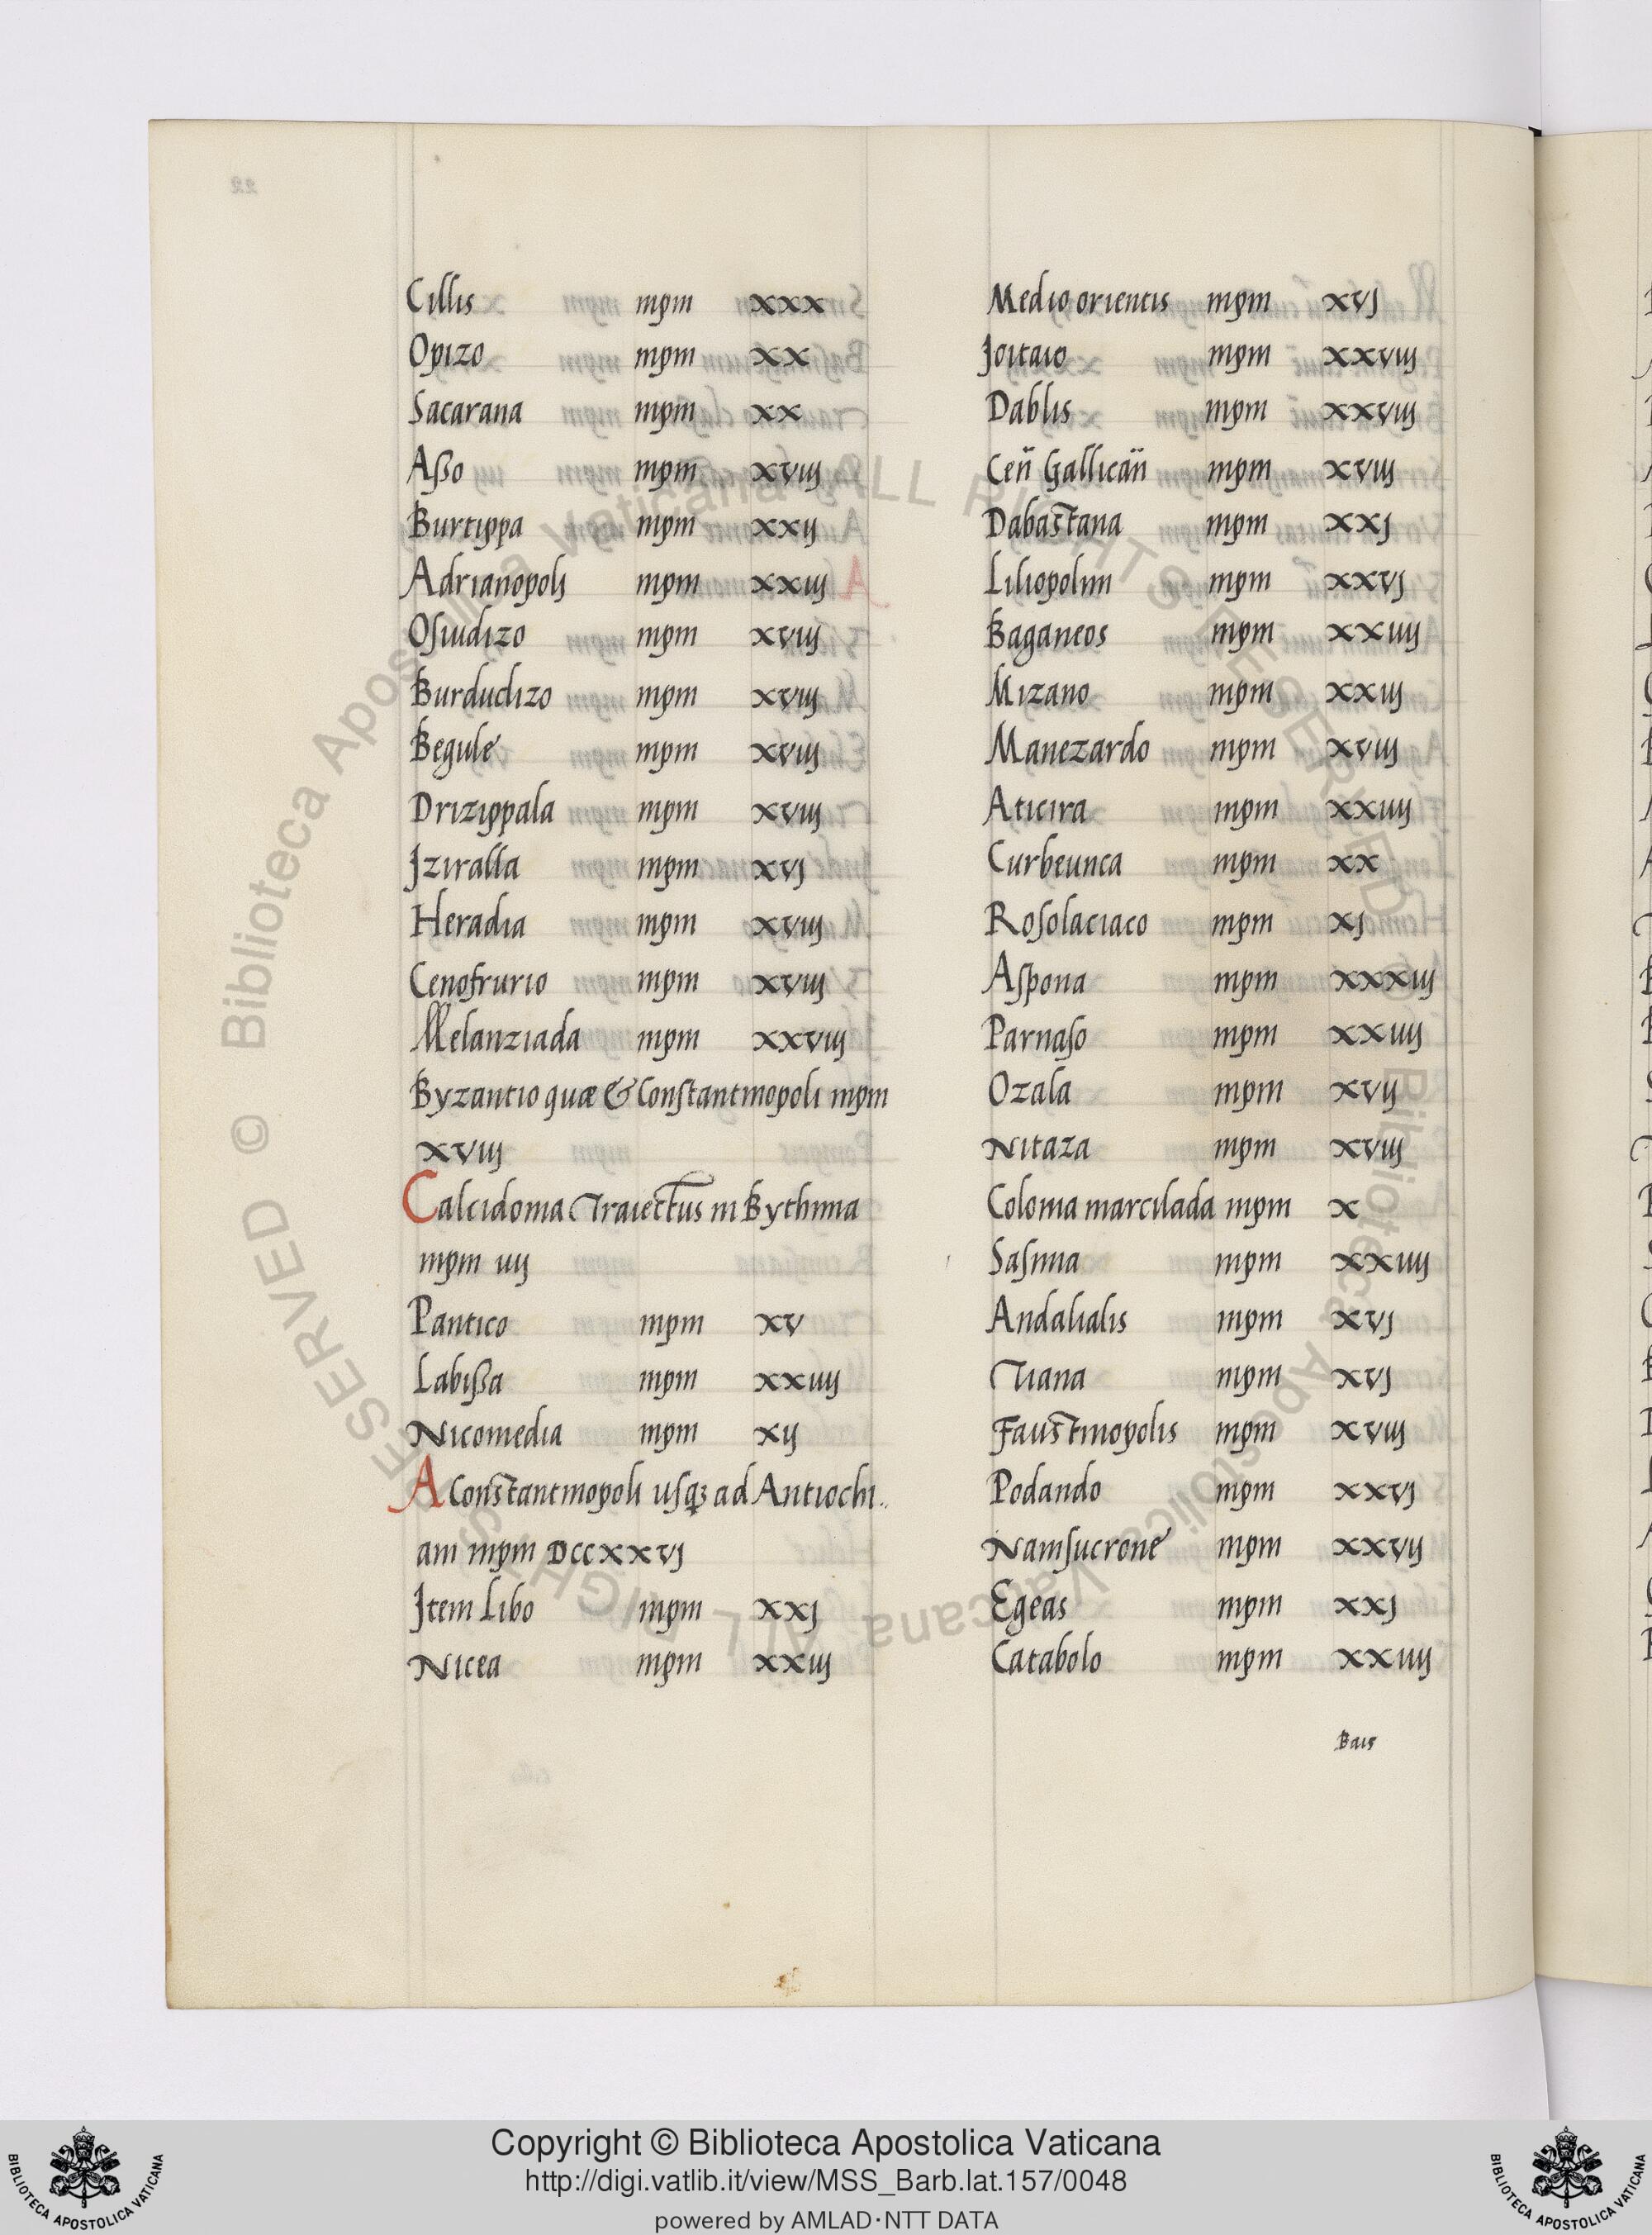 Cillis mpm xxx
Opizo mpm xx
Sacarana mpm xx
Aßo mpm xviij
Burtippa mpm xxij
Adrianopoli mpm xxiij
Osiudizo mpm xviij
Burdudizo mpm xviij
Begule mpm xviij
Drizippala mpm xviij
Jziralla mpm xvj
Heradia mpm xviij
Cenofrurio mpm xviij
Melanziada mpm xxviij
Byzantio quæ & Constantinopoli mpm
xviij
Calcidonia Traiectus in Bythinia
mpm iiij
Pantico mpm xv
Labißa mpm xxiiij
Nicomedia mpm xij
A Constantinopoli usq; ad Antiochi
am mpm DCCxxvj
Jtem Libo mpm xxj
Nicea mpm xxiij
Medio orientis mpm xvj
Joitaio mpm xxviij
Dablis mpm xxviij
Ceñ Gallicañ mpm xviij
Dabastana mpm xxj
Liliopolim mpm xxvj
Baganeos mpm xxiiij
Mizano mpm xxiij
Manezardo mpm xviij
Aticira mpm xxiiij
Curbeunca mpm xx
Rosolaciaco mpm xj
Aspona mpm xxxiij
Parnaso mpm xxiiij
Ozala mpm xvij
Nitaza mpm xviij
Colonia marcilada mpm x
Sasinia mpm xxiiij
Andalialis mpm xvj
Tiana mpm xvj
Faustinopolis mpm xviij
Podando mpm xxvj
Namsucrone mpm xxvij
Egeas mpm xxj
Catabolo mpm xxiiij
Bais
© Biblioteca Apostolica Vaticana ALL RIGHTS RESERVED © Biblioteca Apostolica Vaticana ALL RIGHTS RESERVED
Copyright © Biblioteca Apostolica Vaticana
http://digi.vatlib.it/view/MSS_Barb.lat.157/0048
powered by AMLAD·NTT DATA
BIBLIOTECA APOSTOLICA VATICANA
BIBLIOTECA APOSTOLICA VATICANA